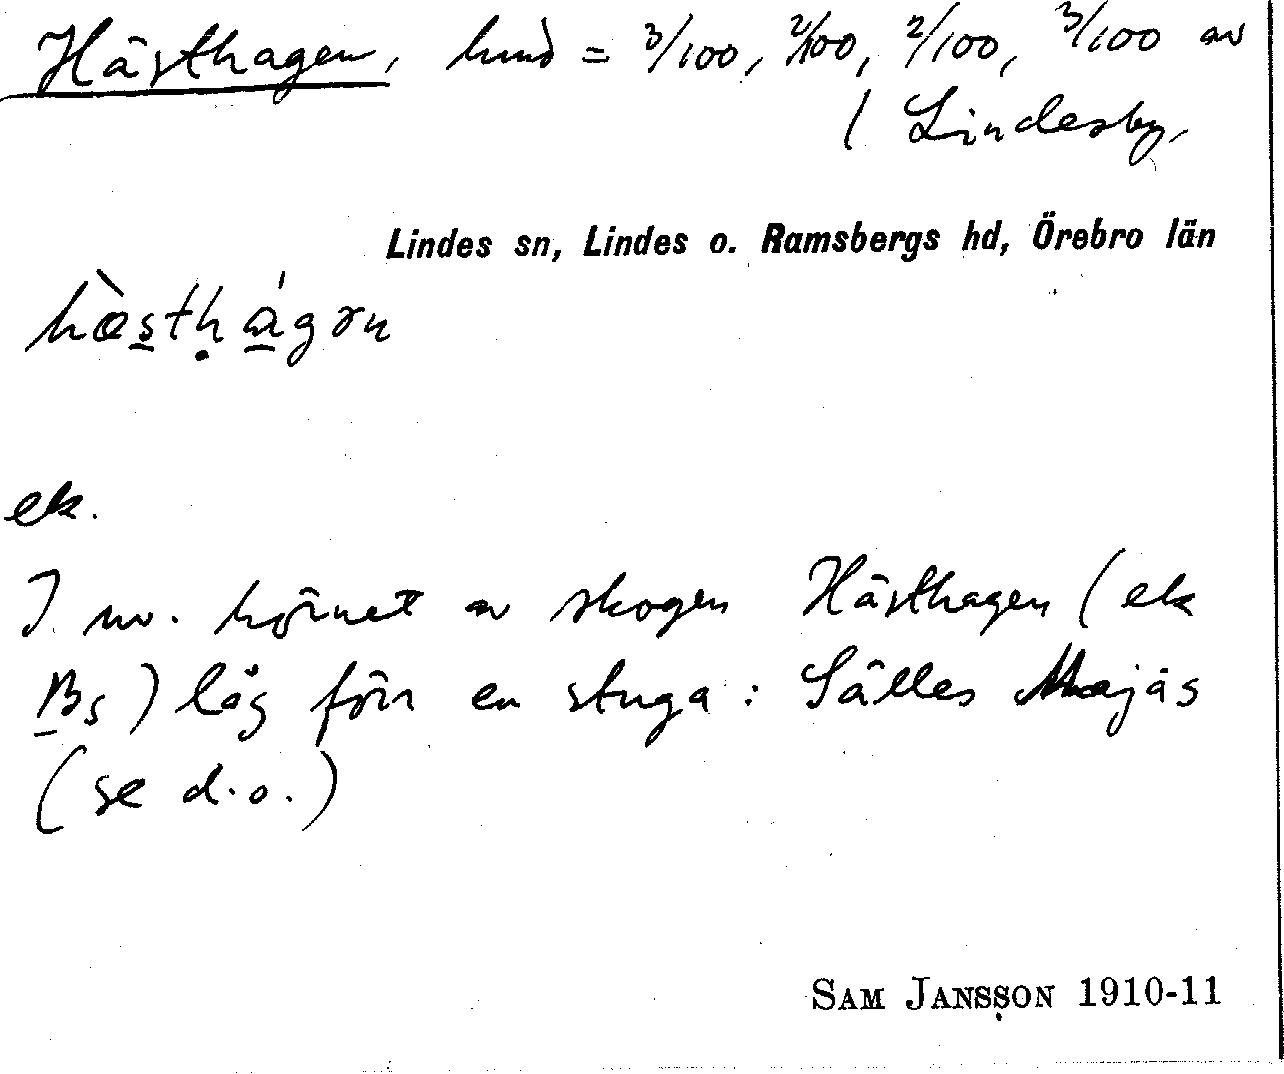 Hästhagen, hmd = 3/100, 2/100, 2/100, 3/100 av
/ Lindesby,
Lindes sn, Lindes o. Ramsbergs hd, Örebro län
hæ̀sthágən
ek.
I nv. hörnet av skogen Hästhagen (ek
Bs) låg förr en stuga: Sälles Majäs
(se d.o.)
SAM JANSSON 1910-11